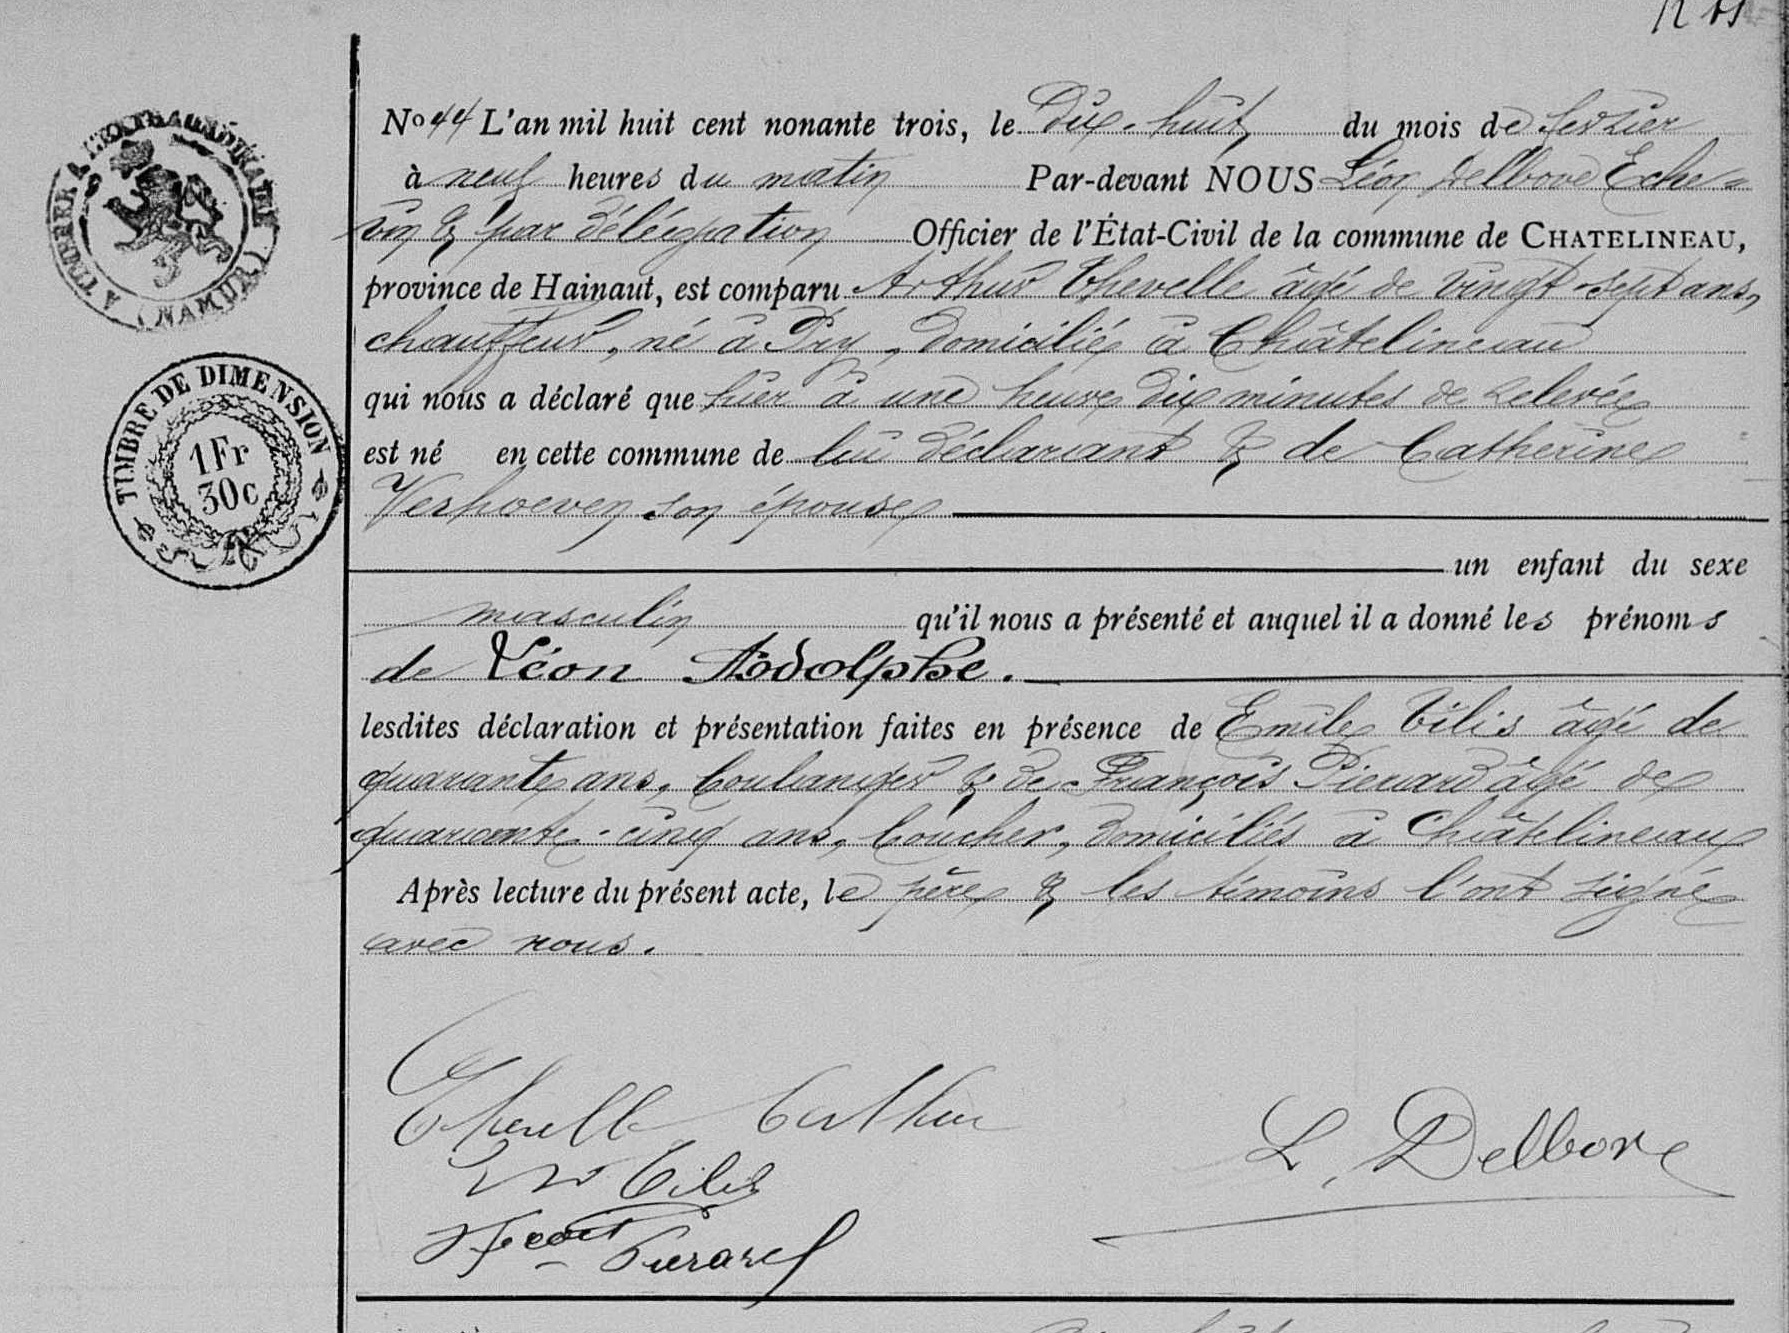 No 44 L'an mil huit cent nonante trois, le dix-huit du mois de février
à neuf heures du matin Par-devant NOUS Léon Delbove Eche-
vin & par délégation Officier de l'État-Civil de la commune de CHATELINEAU,
province de Hainaut, est comparu Arthur Thevelle âgé de vingt-sept ans,
chauffeur, né à Pry, domicilié à Châtelineau
qui nous a déclaré que hier à une heure dix minutes de relevée
est né en cette commune de lui déclarant & de Catherine
Verhoeven son épouse
un enfant du sexe
masculin qu'il nous a présenté et auquel il a donné les prénoms
de Léon Adolphe.
lesdites déclaration et présentation faites en présence de Emile Tilis âgé de
quarante ans, boulanger & de François Pierard âgé de
quarante-cinq ans, boucher, domiciliés à Châtelineau
Après lecture du présent acte, le père & les témoins l'ont signé
avec nous.
A TIMBRER A L'EXTRAORDINAIRE
(NAMUR)
TIMBRE DE DIMENSION
1 Fr
30c
Thevelle Arthur
Tilis
L. Delbove
Pierard